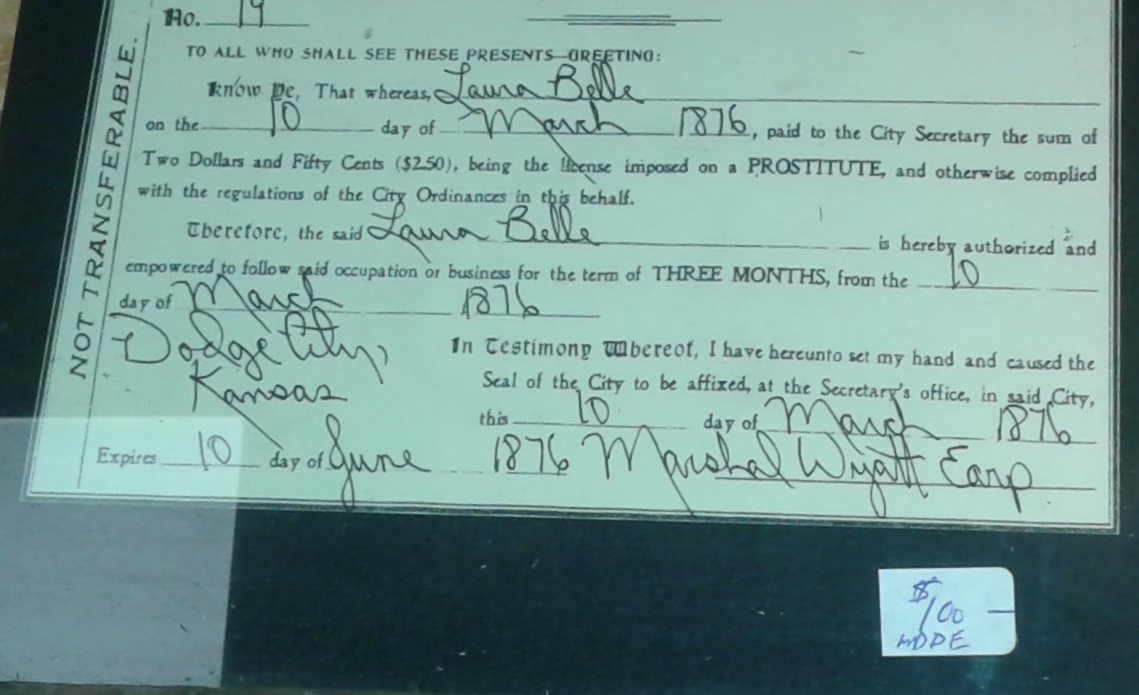 No. 19
TO ALL WHO SHALL SEE THESE PRESENTS—GREETING:
Know Ye, That whereas, Laura Belle
on the 10 day of March 1876, paid to the City Secretary the sum of
Two Dollars and Fifty Cents ($2.50), being the license imposed on a PROSTITUTE, and otherwise complied
with the regulations of the City Ordinances in this behalf.
Therefore, the said Laura Belle is hereby authorized and
empowered to follow said occupation or business for the term of THREE MONTHS, from the 10
day of March 1876
Dodge City,
Kansas
In Testimony Whereof, I have hereunto set my hand and caused the
Seal of the City to be affixed, at the Secretary's office, in said City,
this 10 day of March 1876
Expires 10 day of June 1876 Marshal Wyatt Earp
NOT TRANSFERABLE.
$100